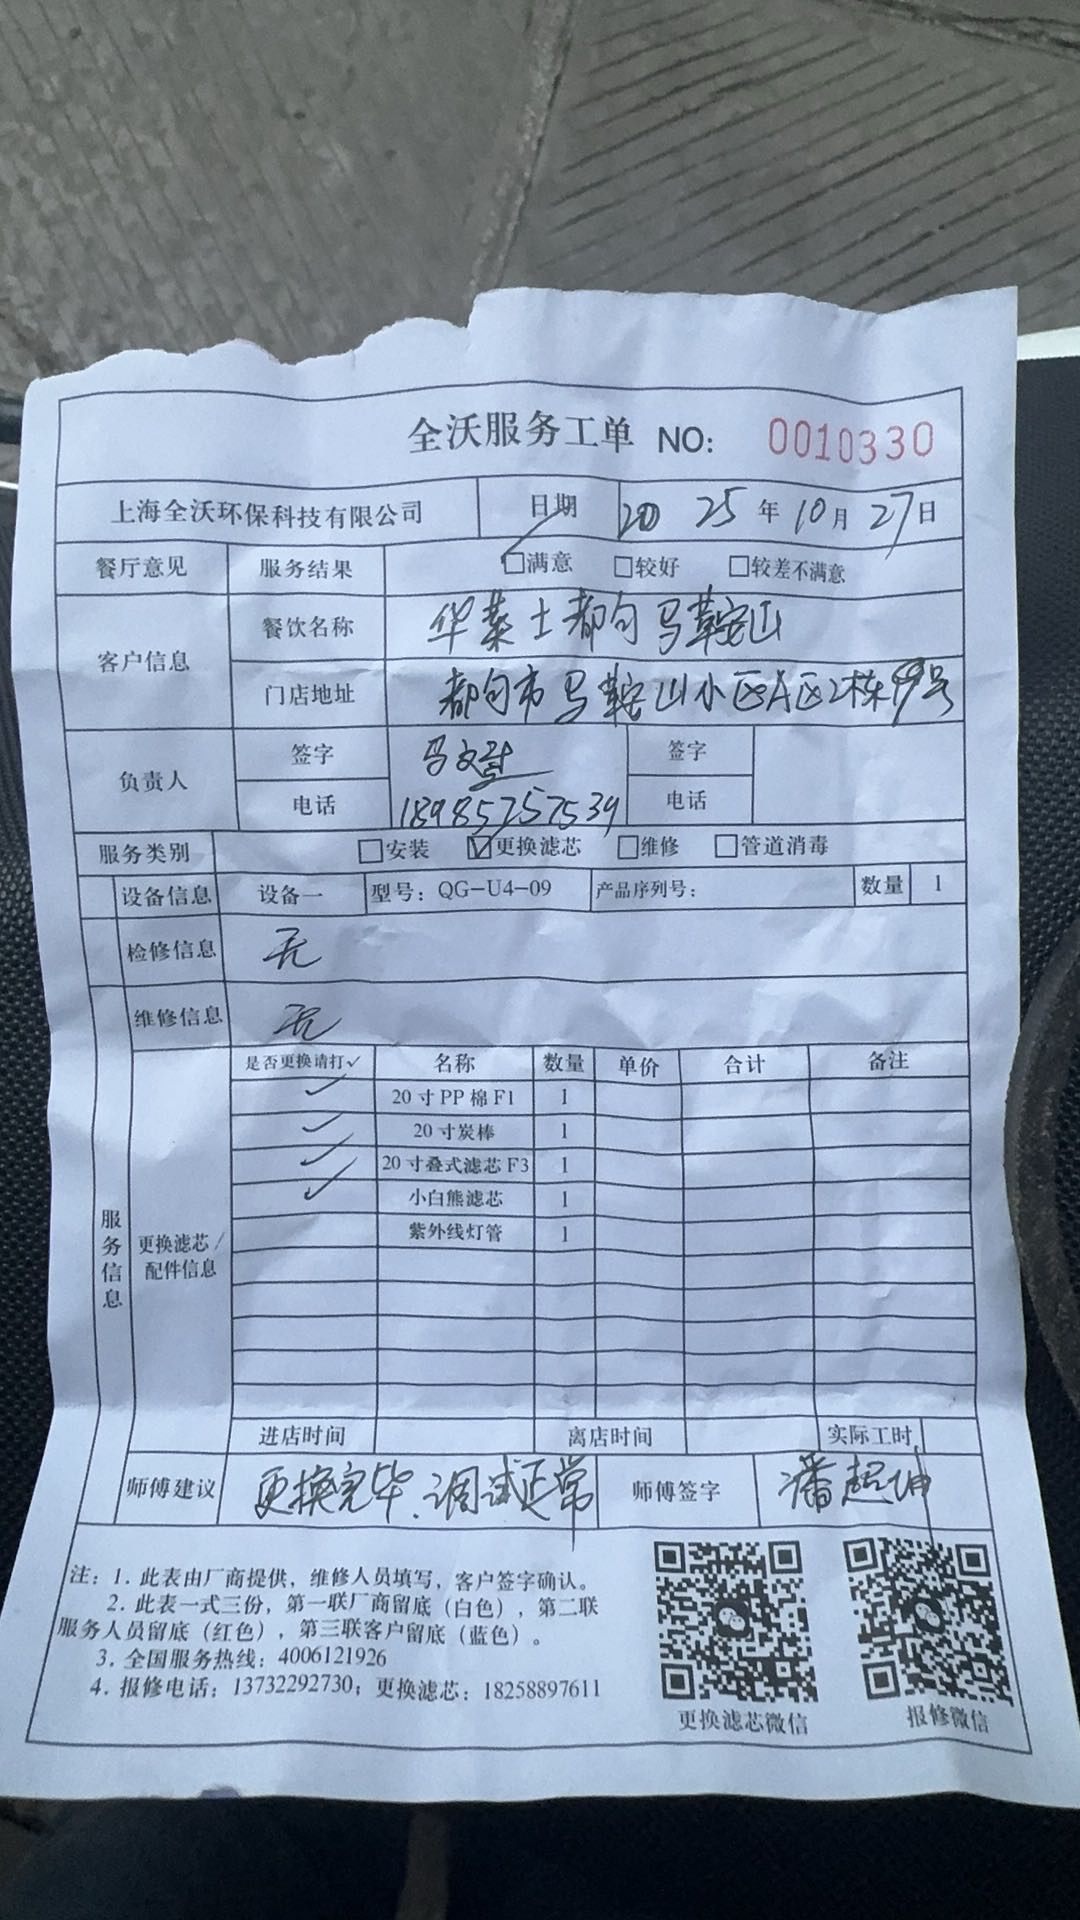 全沃服务工单 NO: 0010330
上海全沃环保科技有限公司 日期 2025年10月27日
餐厅意见 服务结果 ☑满意 □较好 □较差不满意
客户信息 餐饮名称 华莱士都匀马鞍山
门店地址 都匀市马鞍山小区A区2栋99号
负责人 签字 马文 签字
电话 18985757539 电话
服务类别 □安装 ☑更换滤芯 □维修 □管道消毒
设备信息 设备一 型号: QG-U4-09 产品序列号: 数量 1
检修信息 无
维修信息 无
服务信息
更换滤芯/配件信息
是否更换请打✓ 名称 数量 单价 合计 备注
✓ 20寸PP棉F1 1
✓ 20寸炭棒 1
✓ 20寸叠式滤芯F3 1
✓ 小白熊滤芯 1
紫外线灯管 1
进店时间 离店时间 实际工时
师傅建议 更换完毕.调试正常 师傅签字 潘超坤
注: 1. 此表由厂商提供，维修人员填写，客户签字确认。
2. 此表一式三份，第一联厂商留底（白色），第二联
服务人员留底（红色），第三联客户留底（蓝色）。
3. 全国服务热线: 4006121926
4. 报修电话: 13732292730; 更换滤芯: 18258897611
更换滤芯微信 报修微信